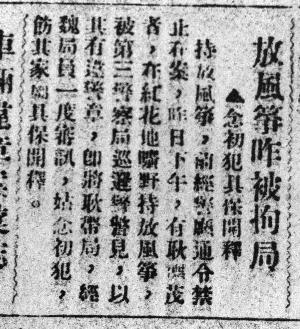 放風箏昨被拘局
▲念初犯具保開釋
持放風箏，前經警廳通令禁
止在案，昨日下午，有耿鴻茂
者，在紅花地曠野持放風箏，
被第三警察局巡邏警瞥見，以
其有違警章，即將耿帶局，經
魏局員一度審訊，姑念初犯，
飭其家屬具保開釋。